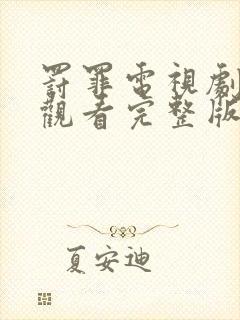 罰罪電視劇
觀看完整版
夏安迪